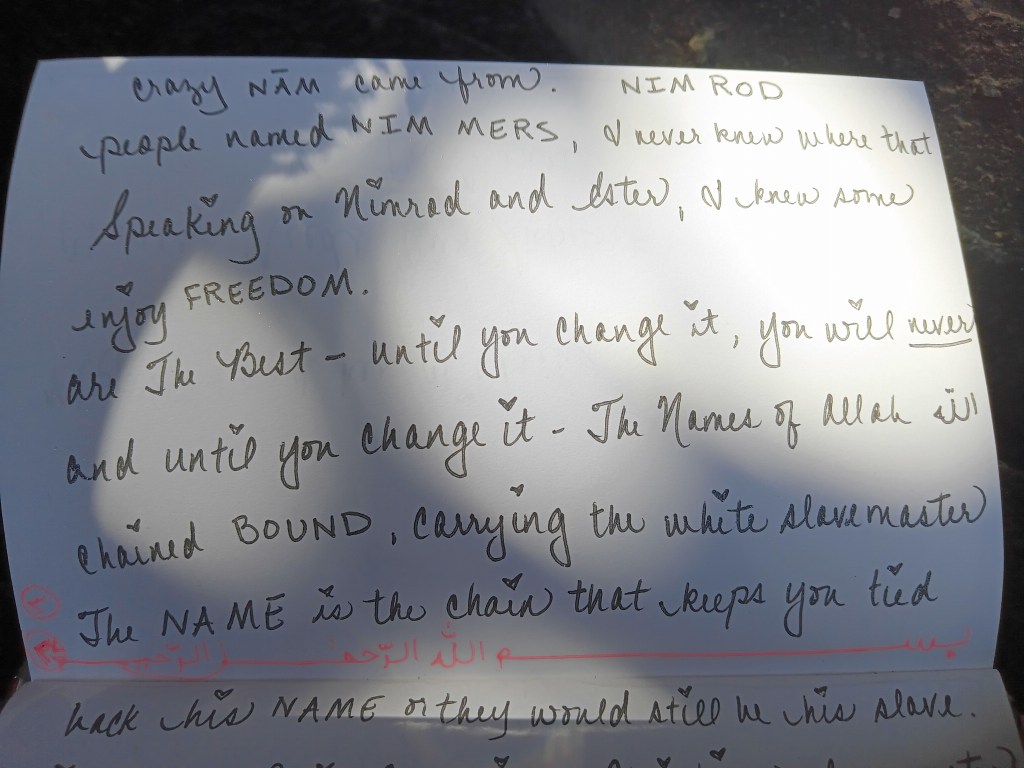 crazy NĀM came from. NIM ROD
people named NIM MERS, I never knew where that
Speaking on Nimrod and Ester, I knew some
enjoy FREEDOM.
are The Best - until you change it, you will never
and until you change it - The Names of Allah الله
chained BOUND, carrying the white slavemaster
The NAME is the chain that keeps you tied
بســـــم الله الرّحمـــن الرّحيـــم
back his NAME or they would still be his slave.